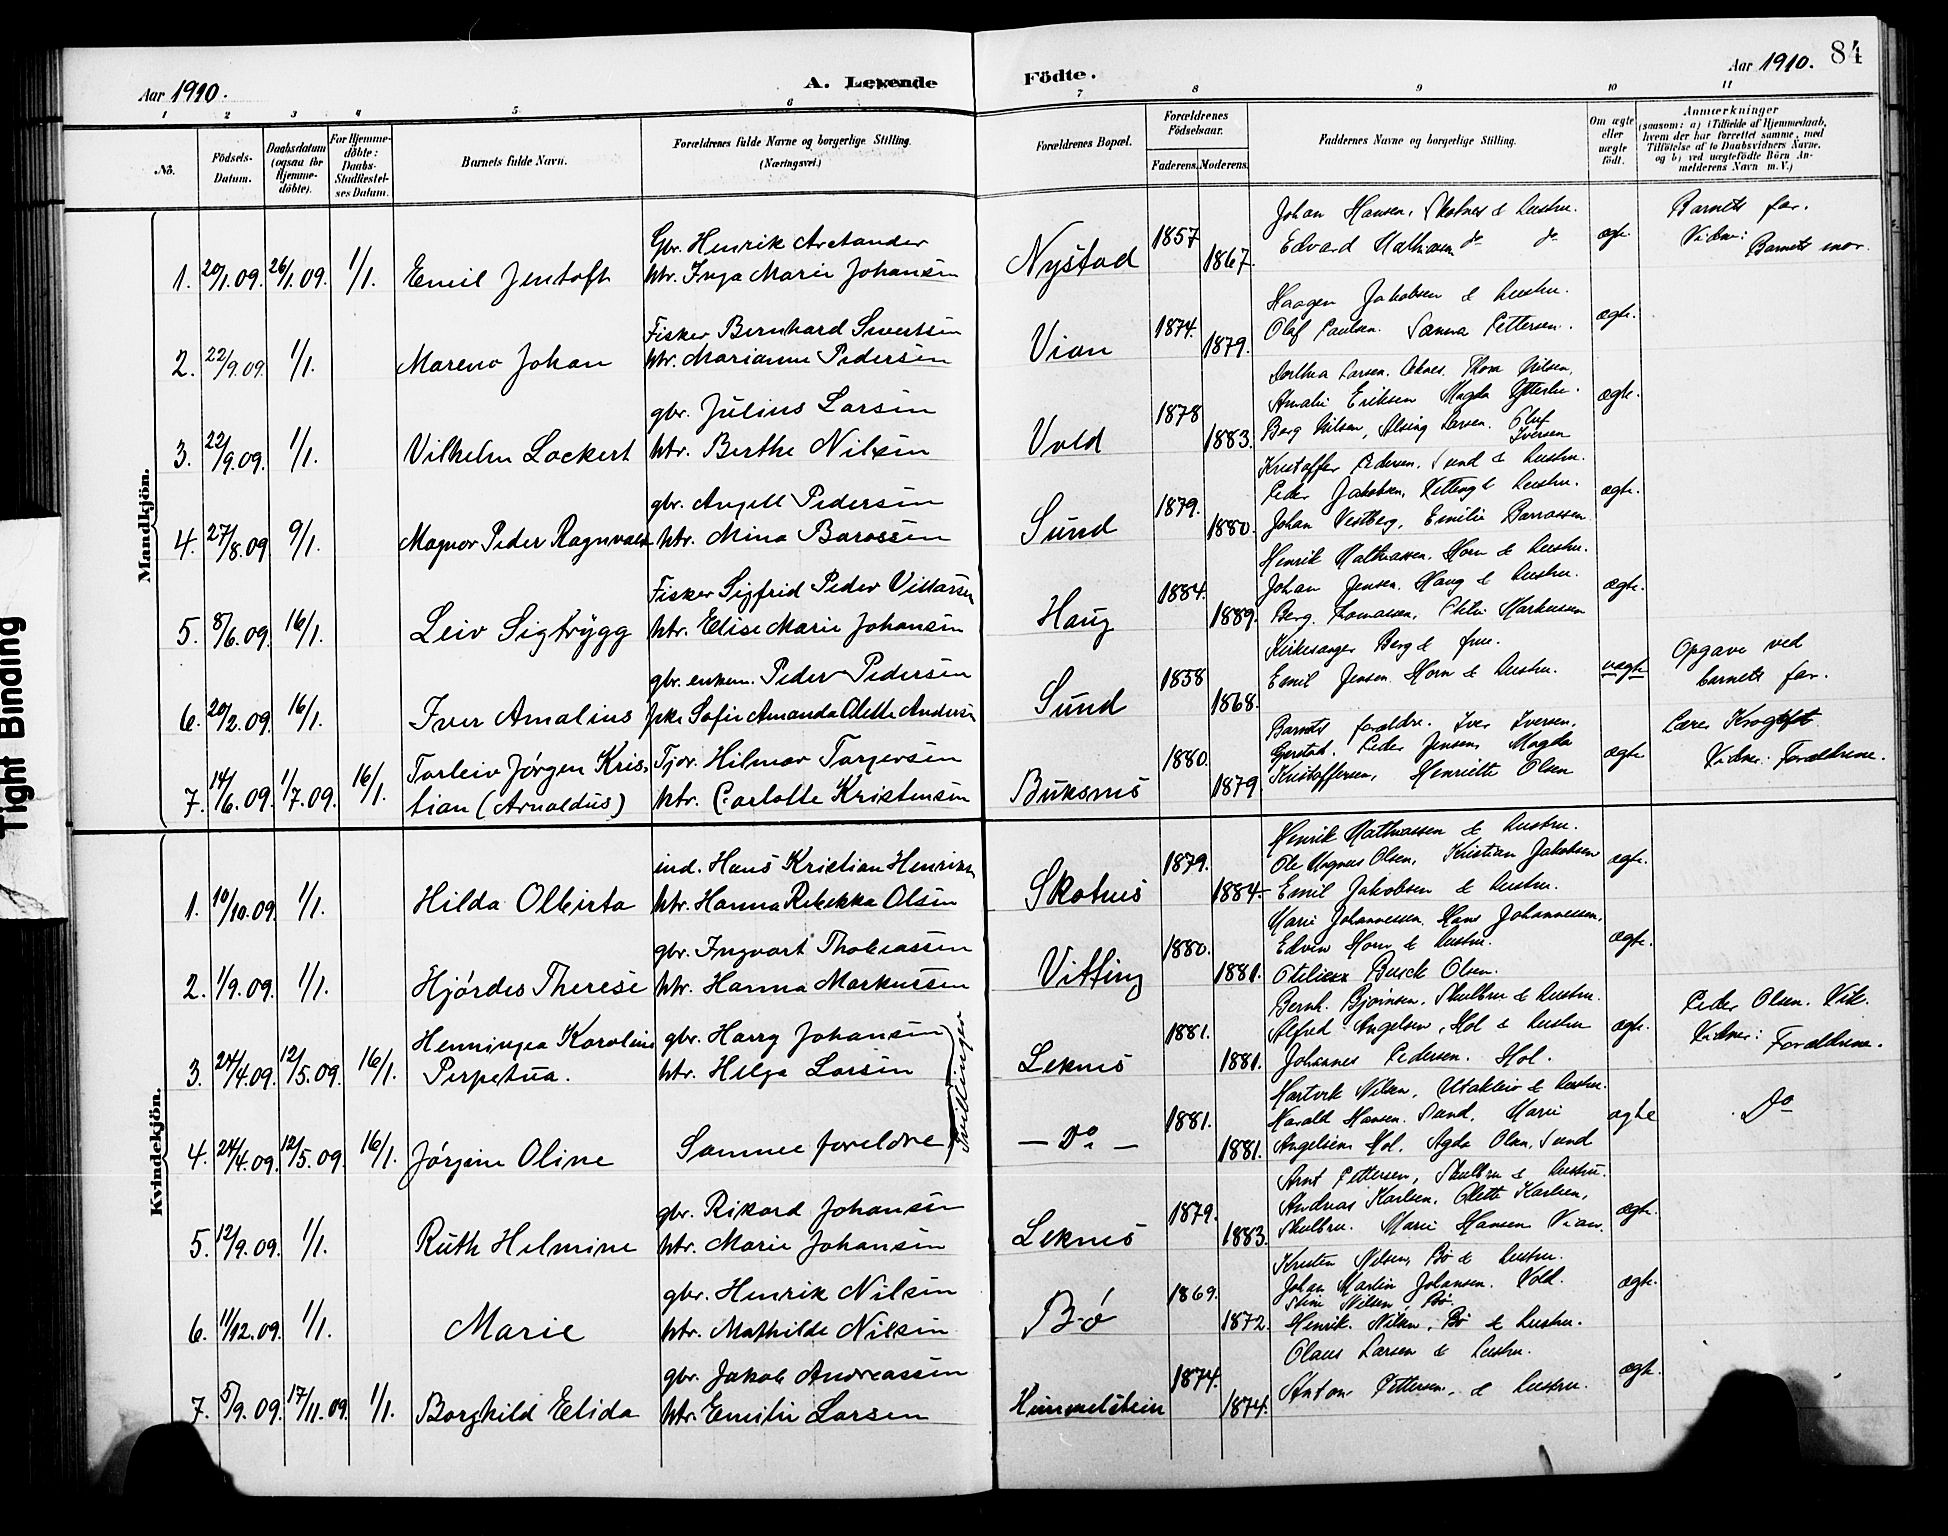 Aar 1910.
A. Levende Födte.
Aar 1910. 84
1 2 3 4 5 6 7 8 9 10 11
No.
Födsels-Datum.
Daabsdatum (ogsaa for Hjemmedöbte).
For Hjemmedöbte: Daabs-Stadfæstelses Datum.
Barnets fulde Navn.
Forældrenes fulde Navne og borgerlige Stilling. (Næringsvei.)
Forældrenes Bopæl.
Forældrenes Födselsaar.
Faderens. Moderens.
Faddernes Navne og borgerlige Stilling.
Om ægte eller uægte födt.
Anmærkninger
(saasom: a) i Tilfælde af Hjemmedaab, hvem der har forrettet samme, med Tilföielse af to Daabsvidners Navne, og b) ved uægtefödte Börn Anmelderens Navn m. V.)
Mandkjön.
Gbr. Henrik Arctander 1857 Johan Hansen, Skotnes & hustru. Barnets far.
1. 20/1.09. 26/1.09. 1/1. Emil Jentoft htr. Inga Marie Johansen Nystad 1867. Edvard Mathisen do do ægte. Vidner: Barnets mor.
Fisker Bernhard Sivertsen 1874. Haagen Jakobsen & hustru.
2. 22/9.09. 1/1. Mareno Johan htr. Marianne Pedersen Vian 1879. Olaf Paulsen. Sanna Pettersen. ægte.
gbr. Julius Larsen 1878 Larsen. Thora Nilsen,
Amalie Eriksen Magda
3. 22/9.09. 1/1. Vilhelm Lockert htr. Berthe Nilsen Vold 1883. Berg Nilsen, Larsen. Oluf Iversen ægte.
gbr. Angell Pedersen 1879. Kristoffer Pedersen, Sund & hustru.
Peder Jakobsen, Vetting & hustru.
4. 27/8.09 9/1. Magnor Peder Ragnvald htr. Mina Barosen Sund 1880. Johan Vestberg, Emilie Barrosen ægte.
Fisker Sigfrid Peder 1884. Henrik Mathiassen. Horn & hustru.
Johan Jensen, Haug & hustru.
5. 8/6.09. 16/1. Leiv Sigtrygg htr. Elise Marie Johansen Haug 1889. Berg. Tomassen, Markussen ægte.
gbr. enkem. Peder Pedersen 1858 Kirkesanger Berg & frue. Opgave ved
6. 20/2.09. 16/1. Iver Amalius pke Sofie Amanda Odette Anders. Sund 1868. Emil Jensen Horn & hustru. uægte barnets far.
Torleiv Jörgen Kris- Tjor. Hilmar Torgersen 1880. Barnets forældre. Iver Iversen, Lære Krogtoft
Gjerstad. Peder Jensen, Magda
7. 14/6.09. 1/7.09. 16/1. tian (Arnoldus) htr. Carlotte Kristensen Buksnes 1879 Kristoffersen, Henriette Olsen ægte Vidner: Forældrene.
Kvindekjön.
ind. Hans Kristian Henriksen 1879. Henrik Mathiassen & hustru.
Ole Magnus Olsen, Kristian Jakobsen
1. 10/10.09. 1/1. Hilda Olbirta htr. Hanna Rebekka Olsen Skotnes 1884. Emil Jakobsen & hustru. ægte.
gbr. Ingvart Thobiassen 1880. Marie Johannessen. Hans Johannessen.
Edvin Horn & hustru.
2. 1/9.09. 1/1. Hjördes Therese htr. Hanna Markussen Vitting 1881. Otilie Busch Olsen. ægte.
Henninga Karoline gbr. Harry Johansen 1881. Bernh. Bjørnsen, Skulbru & hustru. Peder Olsen. Vik.
Alfred Angelsen, Hol & hustru
3. 24/4.09. 12/5.09. 16/1. Perpetua. htr. Helga Larsen Leknes 1881. Johannes Pedersen. Hol. ægte. Vidner: Forældrene.
Tvillinger
1881. Hartvik Nilsen, Utakleiv & hustru.
Harald Hansen. Sand. Marie
4. 24/4.09. 12/5.09. 16/1. Jörgine Oline Samme foreldre – Do – 1881. Angelsen, Hol, Agda Olsen, Sund ægte Do
gbr. Rikard Johansen 1879. Arnt Pettersen, Skulbru & hustru.
Andreas Karlsen. Odette Karlsen,
5. 12/9.09. 1/1. Ruth Helmine htr. Marie Johansen Leknes 1883. Skulbru. Marie Hansen Vian. ægte.
gbr. Henrik Nilsen 1869. Kristen Nilsen, Bø & hustru.
Johan Martin Johansen. Vold.
Stine Nilsen, Bø.
6. 11/12.09. 1/1. Marie htr. Mathilde Nilsen Bø 1872. Henrik Nilsen, Bø & hustru. ægte.
gbr. Jakob Andreassen 1874. Olaus Larsen & hustru.
7. 5/9.09. 17/11.09. 1/1. Borghild Elida htr. Emilie Larsen Himmelstein 1874. Anton Pettersen, & hustru. ægte.
Tight Binding